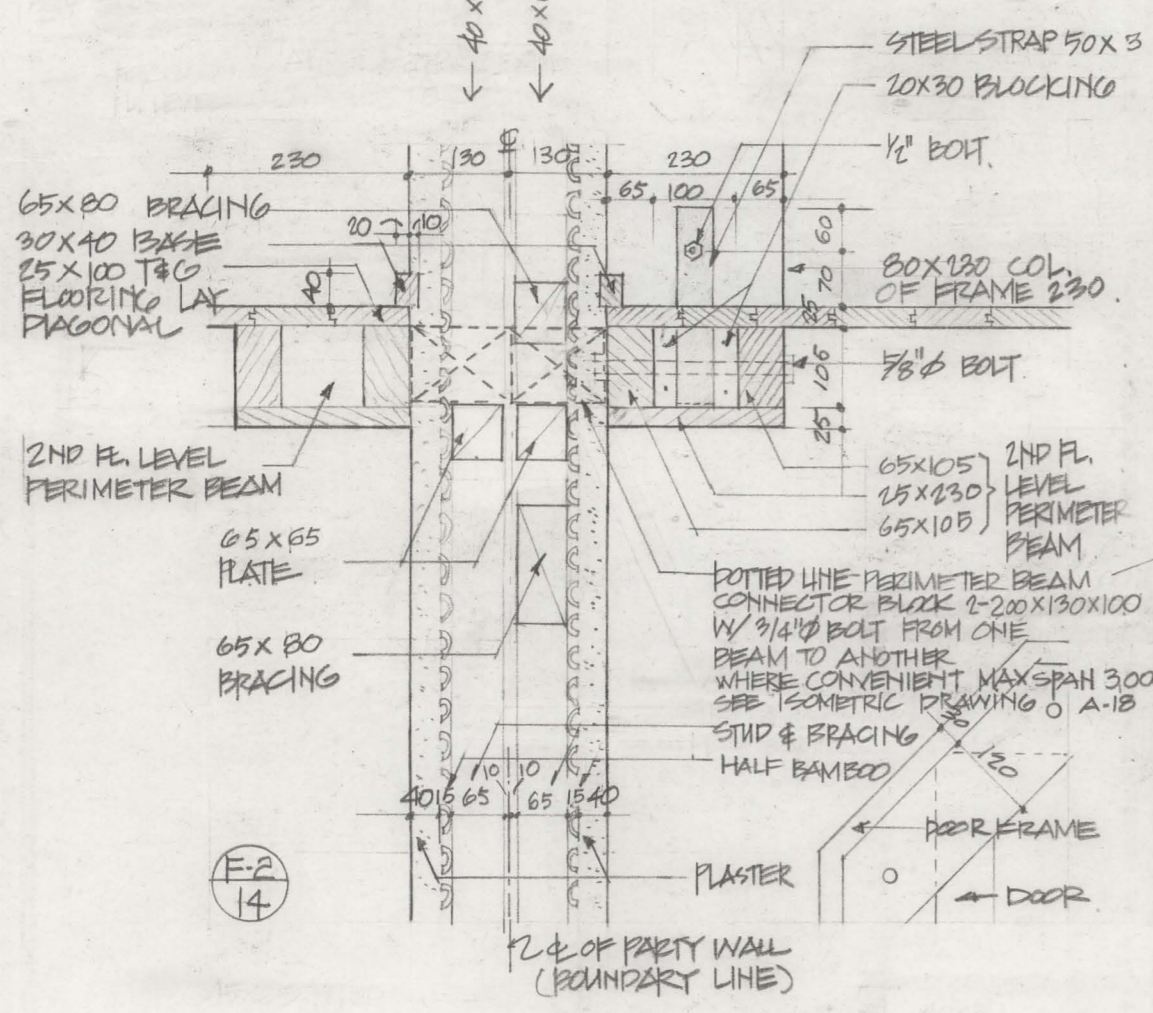 40 X
40 X
STEEL STRAP 50 X 3
20X30 BLOCKING
1/2" BOLT.
230
130
130
230
65X80 BRACING
30X40 BASE
25X100 T&G
FLOORING LAY
DIAGONAL
20
10
65
100
65
40
60
70
25
106
25
80X230 COL.
OF FRAME 230.
5/8"Ø BOLT
2ND FL. LEVEL
PERIMETER BEAM
65X105
25X230
65X105
2ND FL.
LEVEL
PERIMETER
BEAM
65X65
PLATE
DOTTED LINE PERIMETER BEAM
CONNECTOR BLOCK 2-200X130X100
W/ 3/4"Ø BOLT FROM ONE
BEAM TO ANOTHER
WHERE CONVENIENT MAX SPAN 3.00
SEE ISOMETRIC DRAWING A-18
65X80
BRACING
STUD & BRACING
HALF BAMBOO
30
120
40
15
65
10
10
65
15
40
DOOR FRAME
DOOR
PLASTER
F-2
14
℄ OF PARTY WALL
(BOUNDARY LINE)